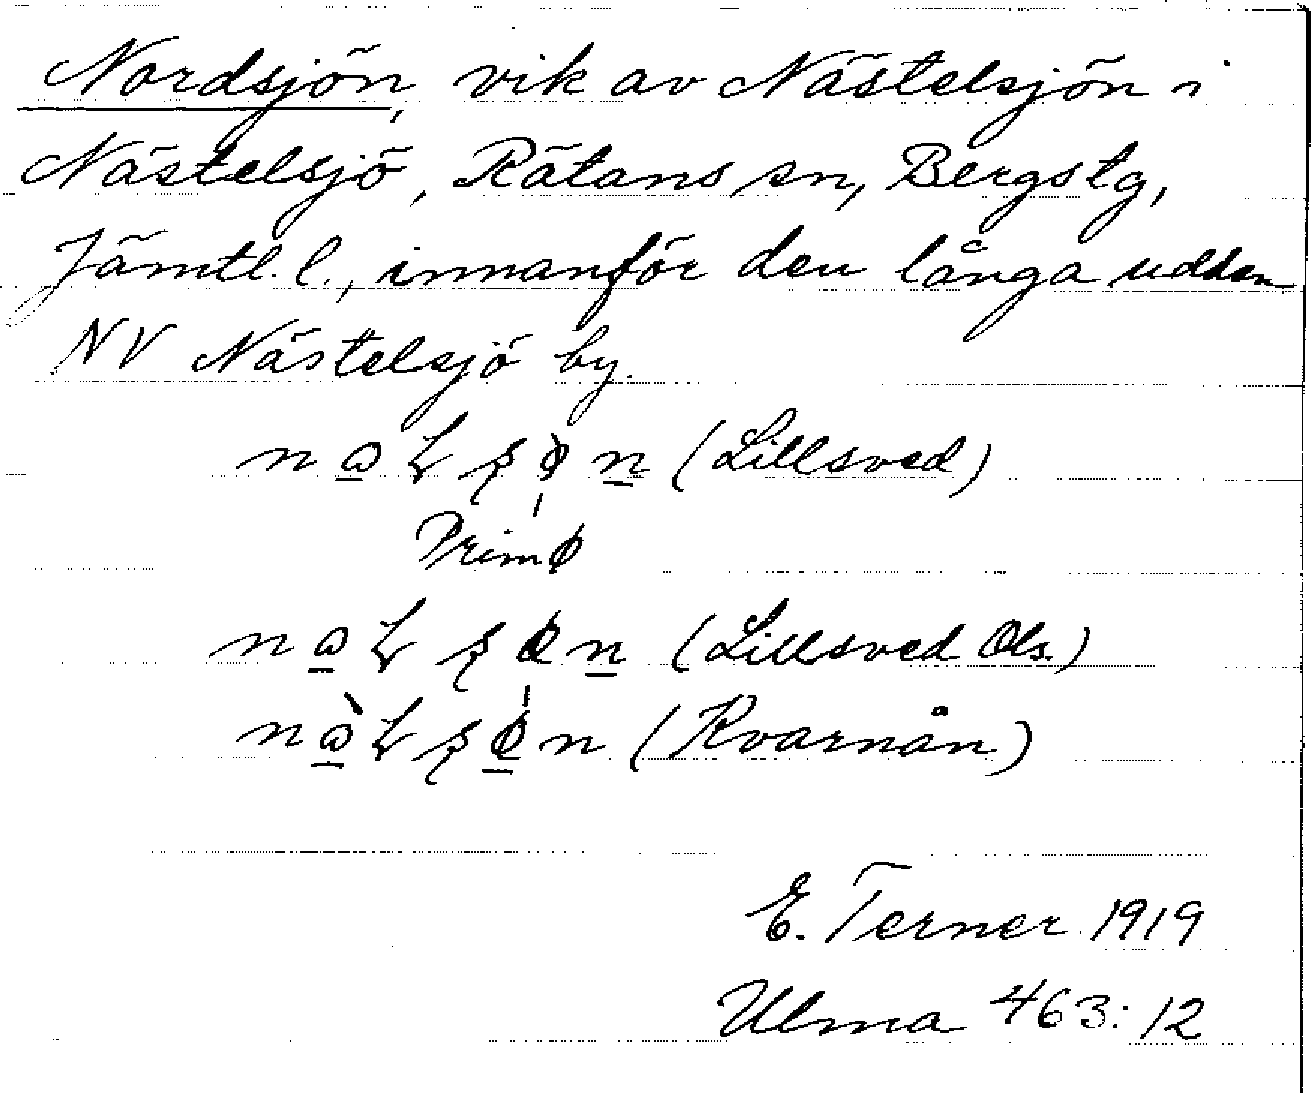 Nordsjön, vik av Nästelsjön i
Nästelsjö, Rätans sn, Bergs tg,
Jämtl. l., innanför den långa udden
NV Nästelsjö by.
(Lillsved)
Prim ø
(Lillsved Ols.)
(Kvarnån)
E. Terner 1919
Ulma 463:12